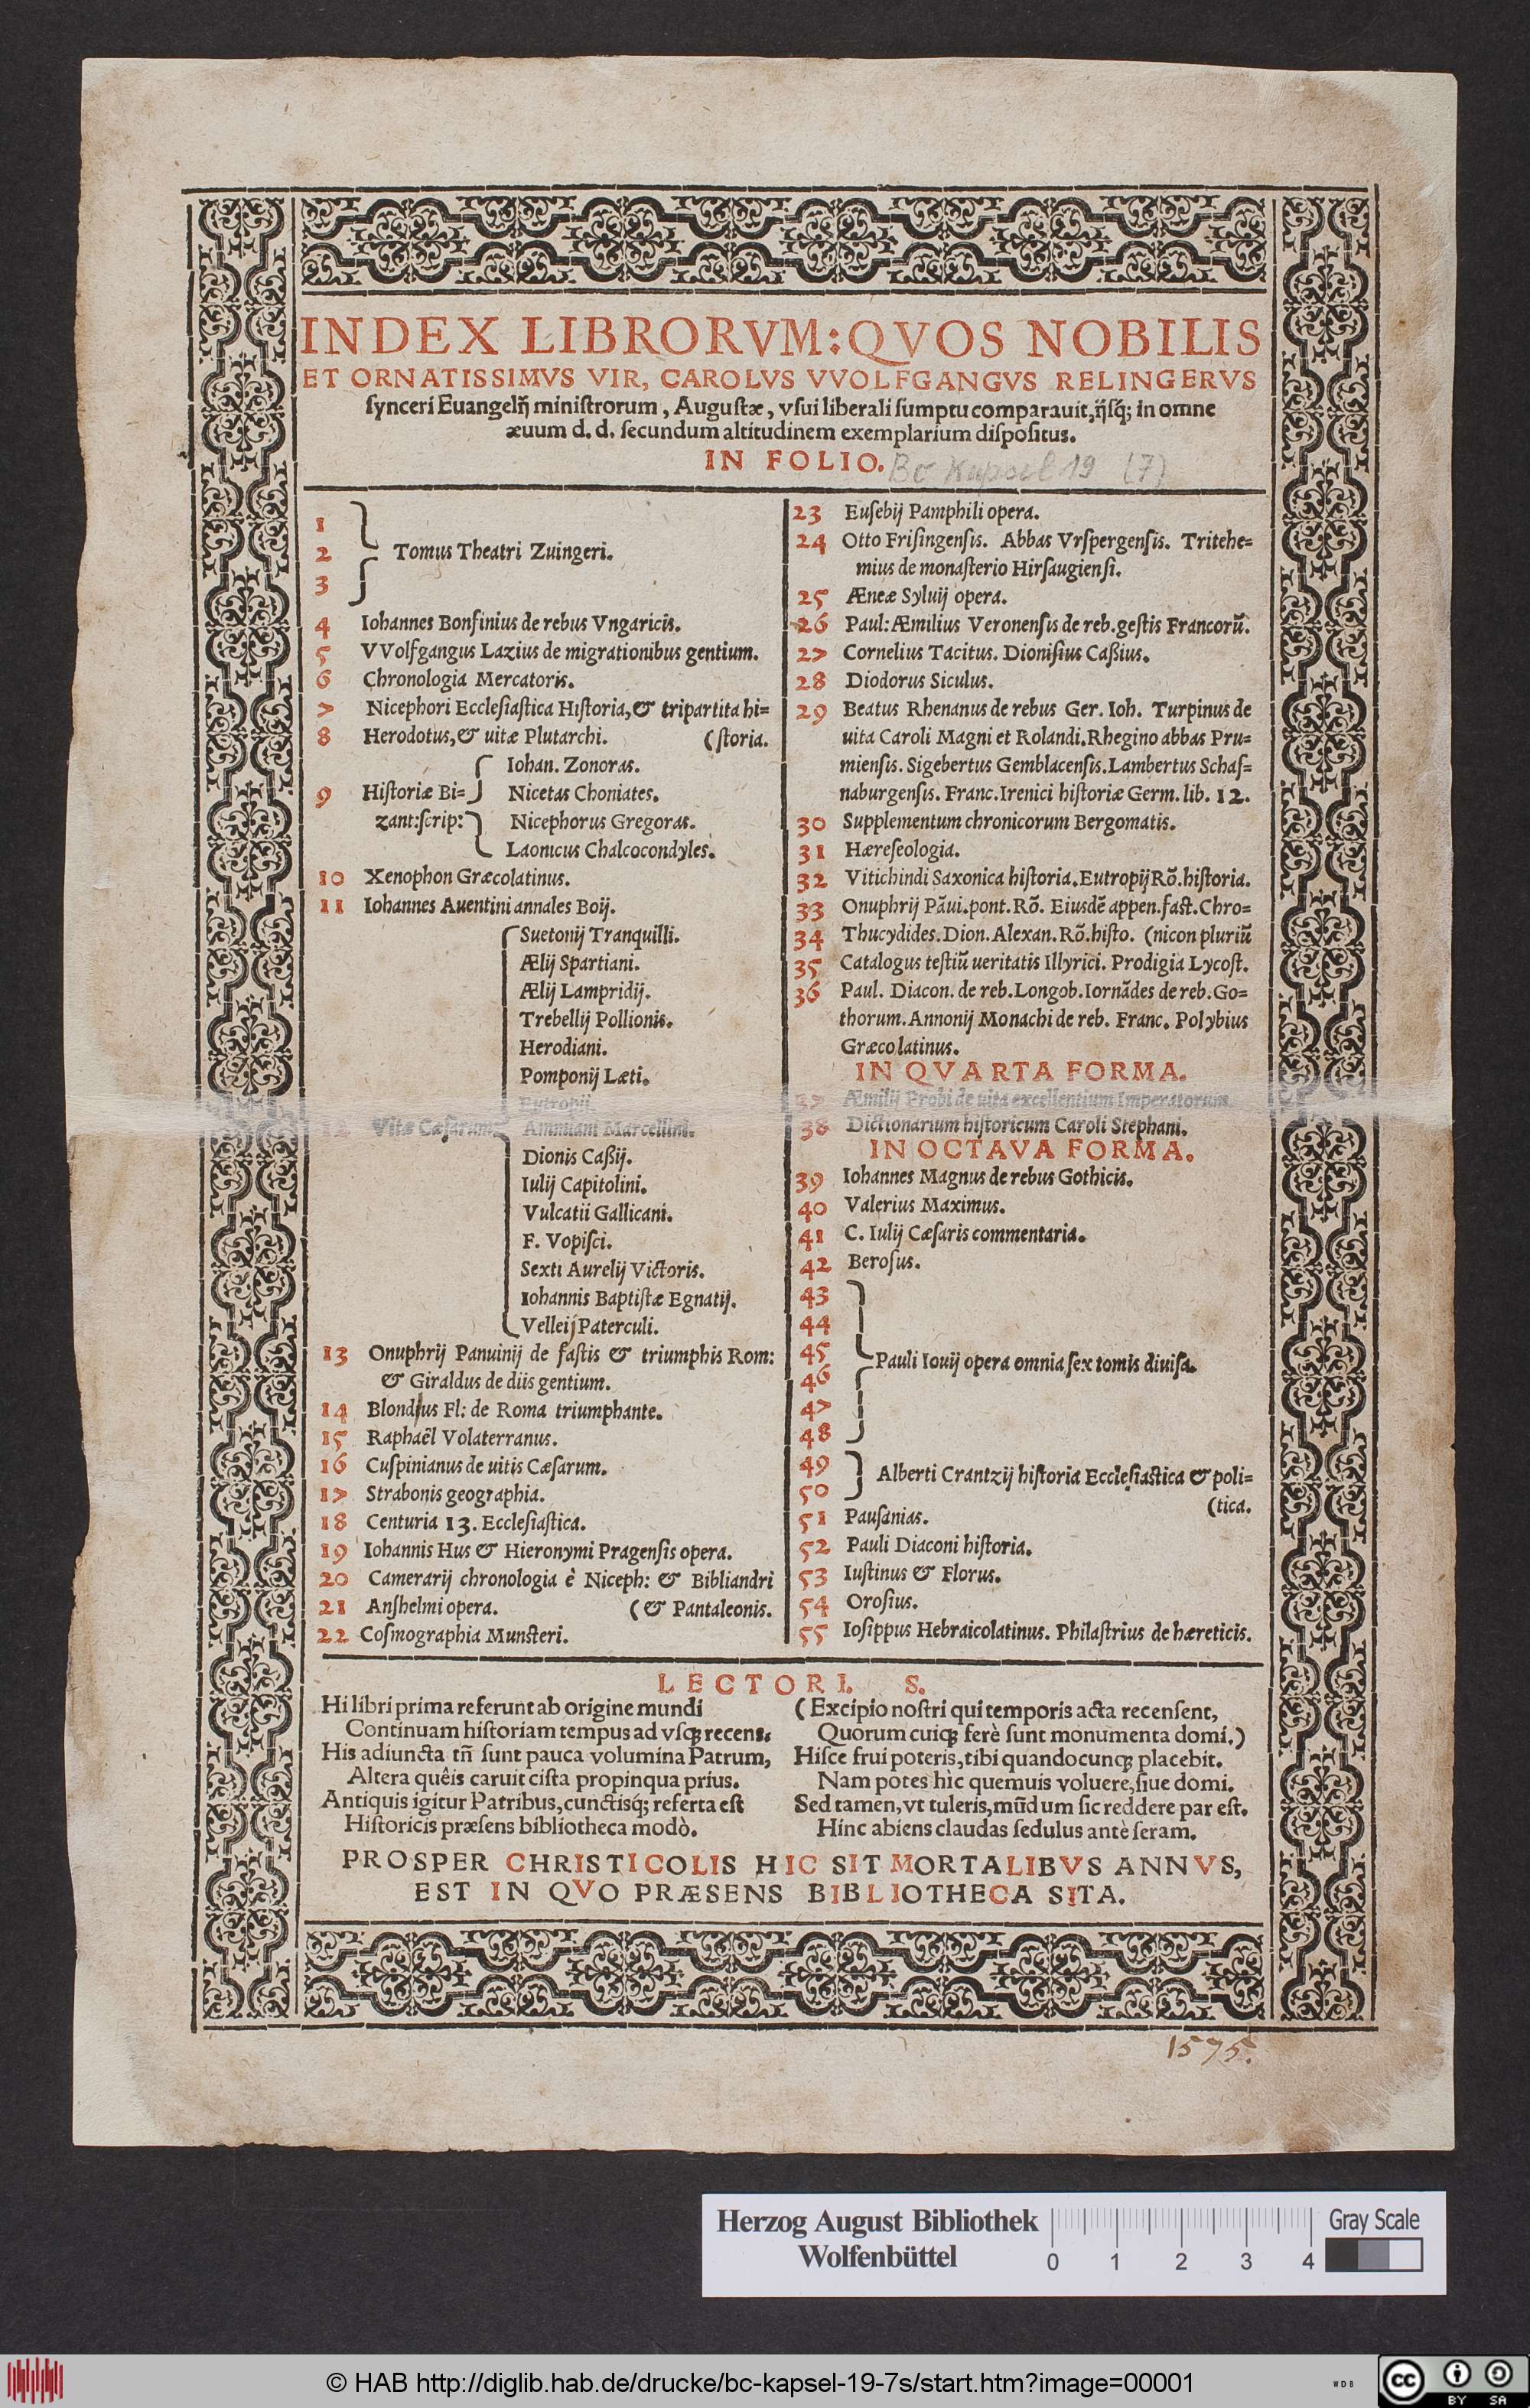 INDEX LIBRORVM: QVOS NOBILIS
ET ORNATISSIMVS VIR, CAROLVS VVOLFGANGVS RELINGERVS
ſynceri Euangelij̄ miniſtrorum, Auguſtæ, vſui liberali ſumptu comparauit, ijſq́; in omne
æuum d. d. ſecundum altitudinem exemplarium diſpoſitus.
IN FOLIO. Bc Kapsel 19 (7)
1
2 Tomus Theatri Zuingeri.
3
4 Iohannes Bonfinius de rebus Vngaricis.
5 VVolfgangus Lazius de migrationibus gentium.
6 Chronologia Mercatoris.
7 Nicephori Eccleſiaſtica Hiſtoria, & tripartita hi=
8 Herodotus, & uitæ Plutarchi. (ſtoria.
Iohan. Zonoras.
9 Hiſtoriæ Bi= Nicetas Choniates.
zant: ſcrip: Nicephorus Gregoras.
Laonicus Chalcocondyles.
10 Xenophon Græcolatinus.
11 Iohannes Auentini annales Boij.
Suetonij Tranquilli.
Ælij Spartiani.
Ælij Lampridij.
Trebellij Pollionis.
Herodiani.
Pomponij Læti.
Eutropij.
12 Vitæ Cæſarum Ammiani Marcellini.
Dionis Caßij.
Iulij Capitolini.
Vulcatii Gallicani.
F. Vopiſci.
Sexti Aurelij Victoris.
Iohannis Baptiſtæ Egnatij.
Velleij Paterculi.
13 Onuphrij Panuinij de faſtis & triumphis Rom:
& Giraldus de diis gentium.
14 Blondius Fl: de Roma triumphante.
15 Raphaël Volaterranus.
16 Cuſpinianus de uitis Cæſarum.
17 Strabonis geographia.
18 Centuria 13. Eccleſiaſtica.
19 Iohannis Hus & Hieronymi Pragenſis opera.
20 Camerarij chronologia è Niceph: & Bibliandri
21 Anſhelmi opera. (& Pantaleonis.
22 Coſmographia Munſteri.
23 Euſebij Pamphili opera.
24 Otto Friſingenſis. Abbas Vrſpergenſis. Tritehe=
mius de monaſterio Hirſaugienſi.
25 Æneæ Syluij opera.
26 Paul: Æmilius Veronenſis de reb. geſtis Francorū.
27 Cornelius Tacitus. Dioniſius Caßius.
28 Diodorus Siculus.
29 Beatus Rhenanus de rebus Ger. Ioh. Turpinus de
uita Caroli Magni et Rolandi. Rhegino abbas Pru=
mienſis. Sigebertus Gemblacenſis. Lambertus Schaf=
naburgenſis. Franc. Irenici hiſtoriæ Germ. lib. 12.
30 Supplementum chronicorum Bergomatis.
31 Hæreſeologia.
32 Vitichindi Saxonica hiſtoria. Eutropij Rō. hiſtoria.
33 Onuphrij Pāui. pont. Rō. Eiusdē appen. faſt. Chro=
34 Thucydides. Dion. Alexan. Rō. hiſto. (nicon pluriū
35 Catalogus teſtiū ueritatis Illyrici. Prodigia Lycoſt.
36 Paul. Diacon. de reb. Longob. Iornādes de reb. Go=
thorum. Annonij Monachi de reb. Franc. Polybius
Græcolatinus.
IN QVARTA FORMA.
37 Æmilij Probi de uita excellentium Imperatorum.
38 Dictionarium hiſtoricum Caroli Stephani.
IN OCTAVA FORMA.
39 Iohannes Magnus de rebus Gothicis.
40 Valerius Maximus.
41 C. Iulij Cæſaris commentaria.
42 Beroſus.
43
44
45 Pauli Iouij opera omnia ſex tomis diuiſa.
46
47
48
49 Alberti Crantzij hiſtoria Eccleſiaſtica & poli=
50 (tica.
51 Pauſanias.
52 Pauli Diaconi hiſtoria.
53 Iuſtinus & Florus.
54 Oroſius.
55 Ioſippus Hebraicolatinus. Philaſtrius de hæreticis.
LECTORI. S.
Hi libri prima referunt ab origine mundi
Continuam hiſtoriam tempus ad vſq; recens.
His adiuncta tn̄ ſunt pauca volumina Patrum,
Altera quêis caruit ciſta propinqua prius.
Antiquis igitur Patribus, cunctisq́; referta eſt
Hiſtoricis præſens bibliotheca modò.
(Excipio noſtri qui temporis acta recenſent,
Quorum cuiq; ferè ſunt monumenta domi.)
Hiſce frui poteris, tibi quandocunq; placebit.
Nam potes hìc quemuis voluere, ſiue domi.
Sed tamen, vt tuleris, mūdum ſic reddere par eſt.
Hinc abiens claudas ſedulus antè ſeram.
PROSPER CHRISTICOLIS HIC SIT MORTALIBVS ANNVS,
EST IN QVO PRÆSENS BIBLIOTHECA SITA.
1575.
Herzog August Bibliothek
Wolfenbüttel
0 1 2 3 4
Gray Scale
© HAB http://diglib.hab.de/drucke/bc-kapsel-19-7s/start.htm?image=00001
WDB
cc
BY SA